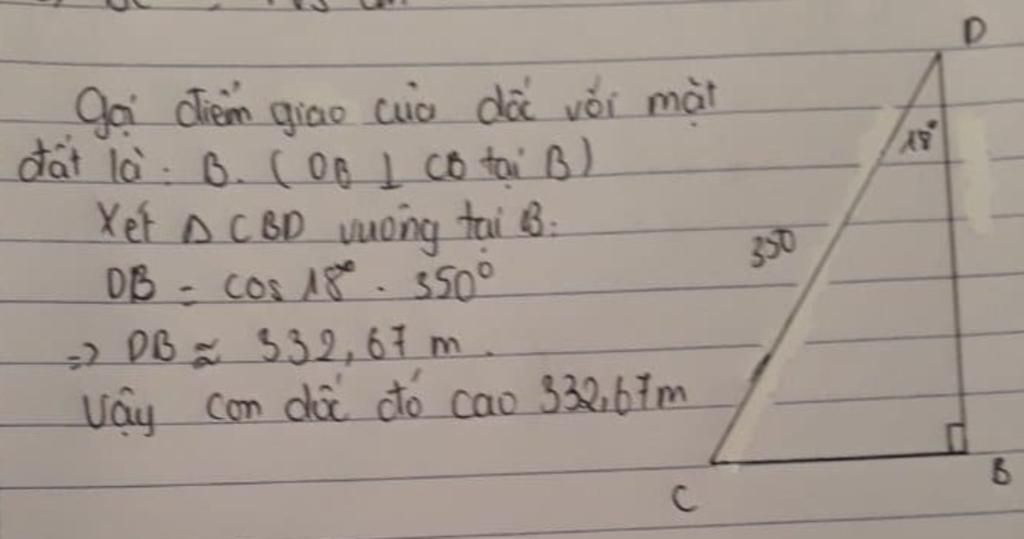 Gọi điểm giao của dốc với mặt
đất là: B. (DB ⊥ CB tại B)
Xét Δ CBD vuông tại B:
DB = cos 18° . 350°
=> DB ≈ 332,67 m.
Vậy con dốc đó cao 332,67m
D
18°
350
C
B